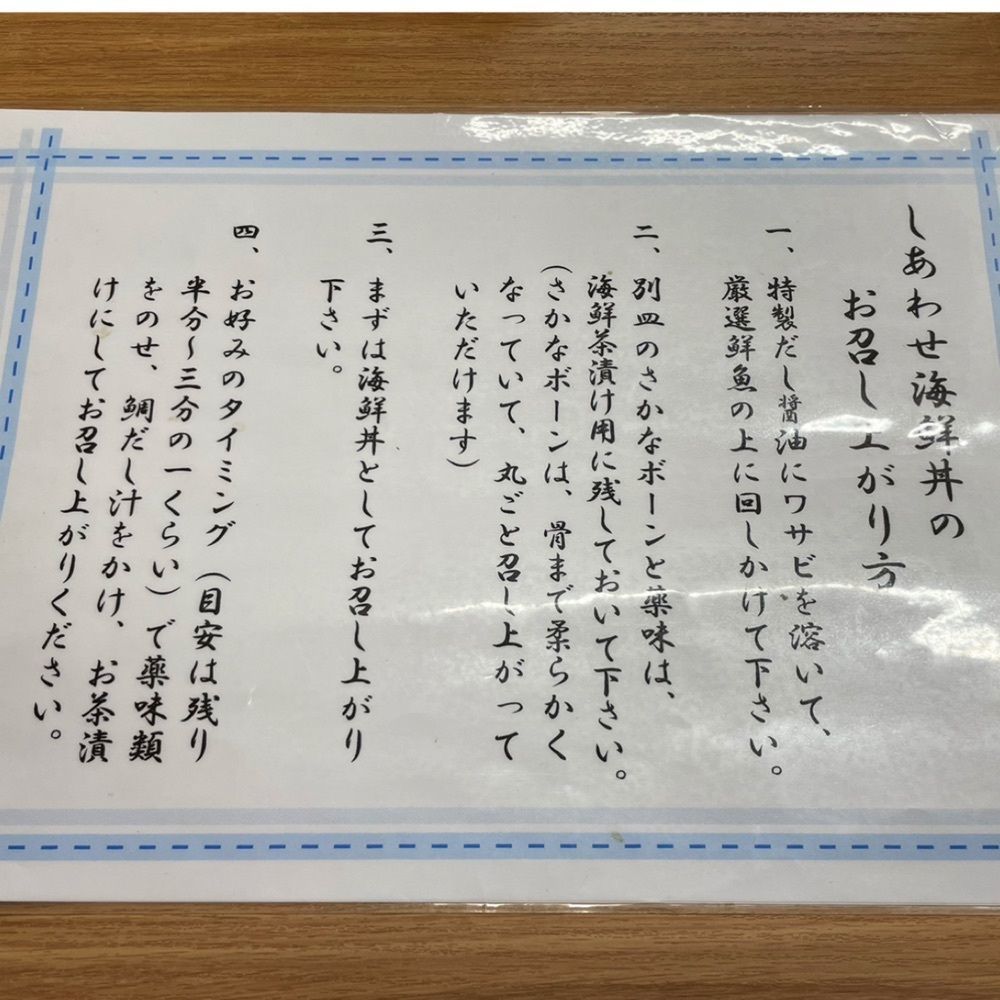 しあわせ海鮮丼の
お召し上がり方
一、特製だし醤油にワサビを溶いて、
厳選鮮魚の上に回しかけて下さい。
二、別皿のさかなボーンと薬味は、
海鮮茶漬け用に残しておいて下さい。
(さかなボーンは、骨まで柔らかく
なっていて、丸ごと召し上がって
いただけます)
三、まずは海鮮丼としてお召し上がり
下さい。
四、お好みのタイミング(目安は残り
半分～三分の一くらい)で薬味類
をのせ、鯛だし汁をかけ、お茶漬
けにしてお召し上がりください。